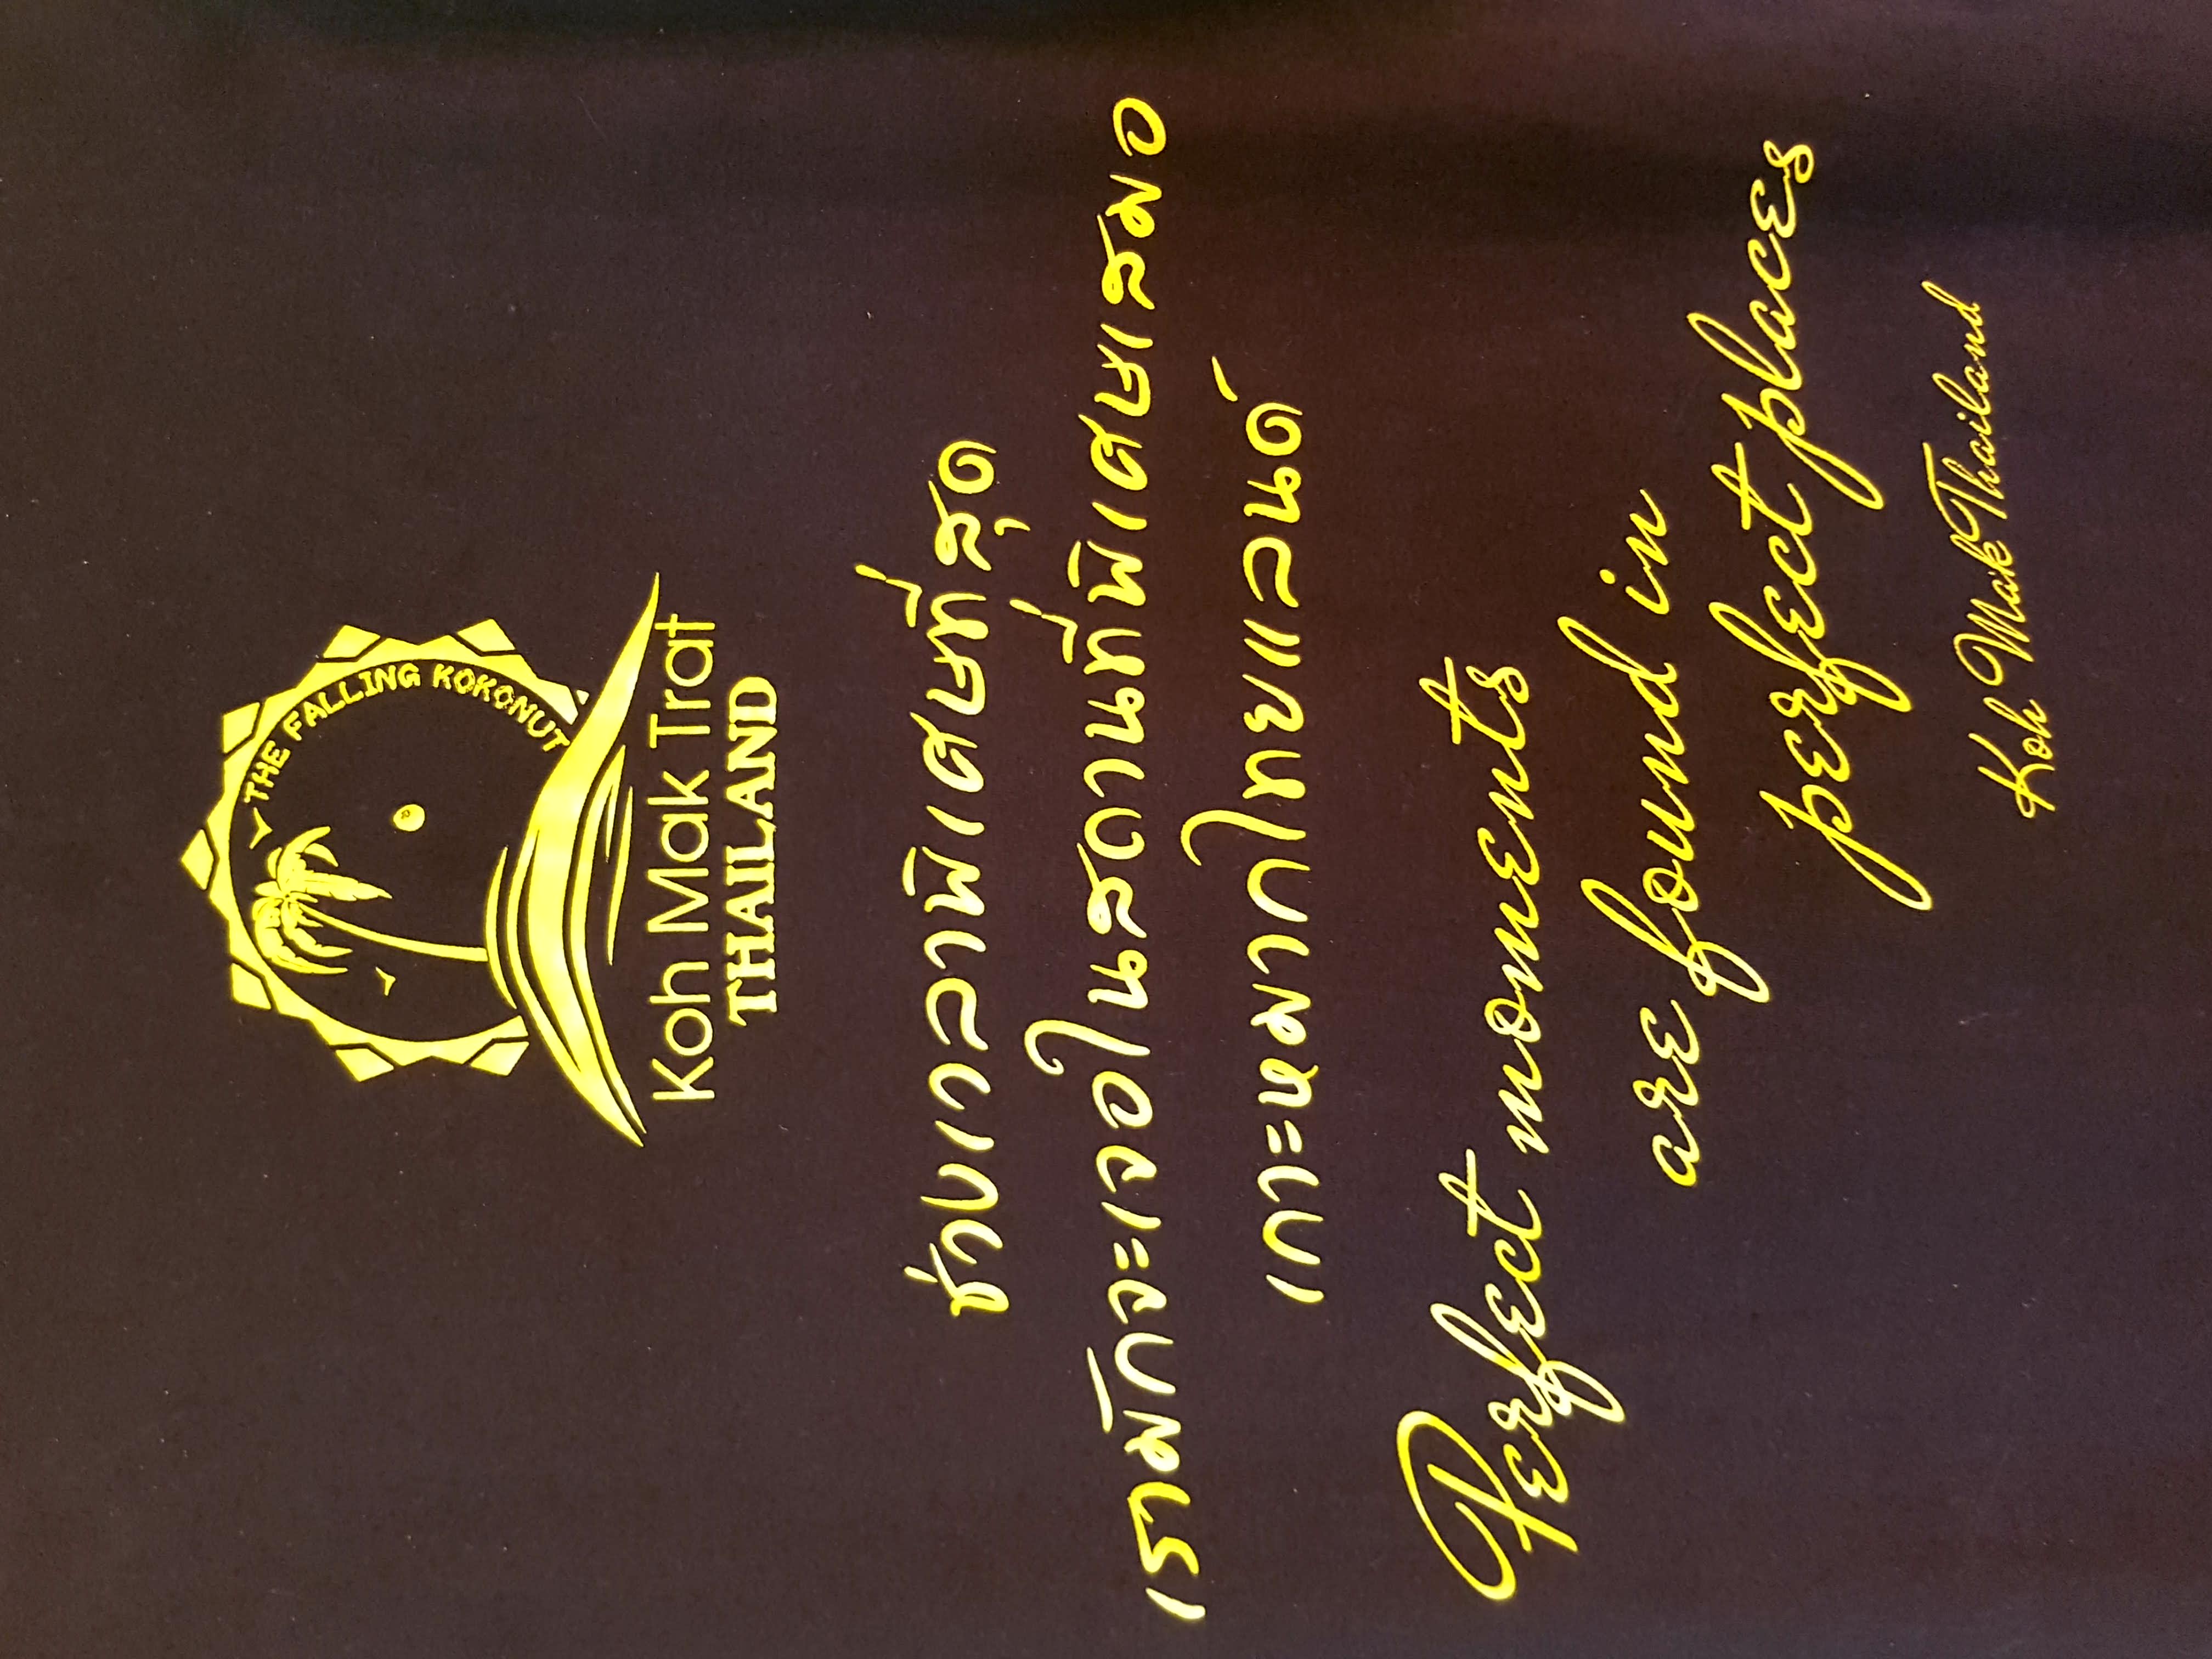 THE FALLING KOKONUT
Koh Mak Trat
THAILAND
ช่วงเวลาพิเศษที่สุด
เรามักจะเจอในสถานที่พิเศษเสมอ
เกาะหมากไทยแลนด์
Perfect moments
are found in
perfect places
Koh Mak Thailand